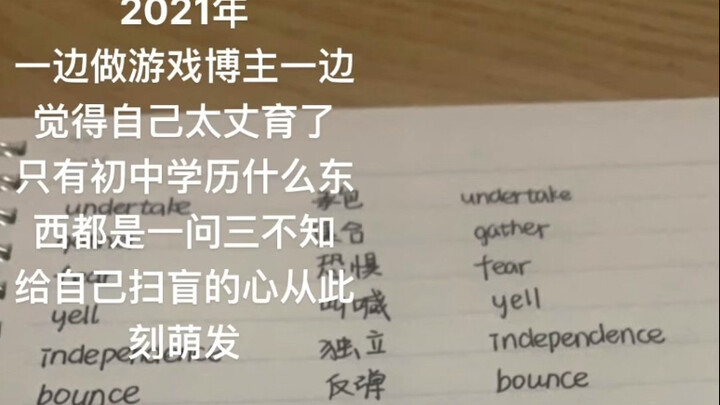 2021年
一边做游戏博主一边
觉得自己太丈育了
只有初中学历什么东
西都是一问三不知
给自己扫盲的心从此
刻萌发
undertake undertake
gather
恐惧 fear
yell 叫喊 yell
independence 独立 independence
bounce 反弹 bounce